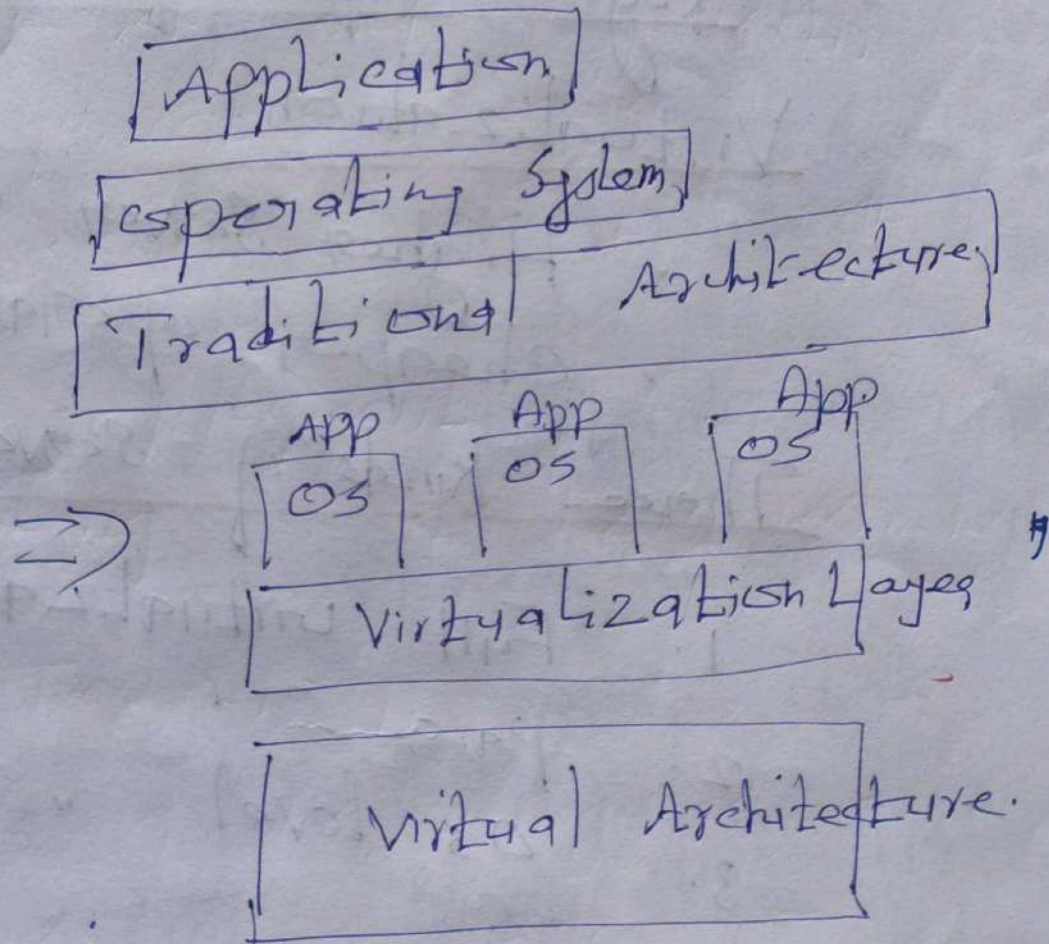 Application
Operating System
Traditional Architecture
App App App
OS OS OS
⇒
Virtualization Layer
Virtual Architecture.